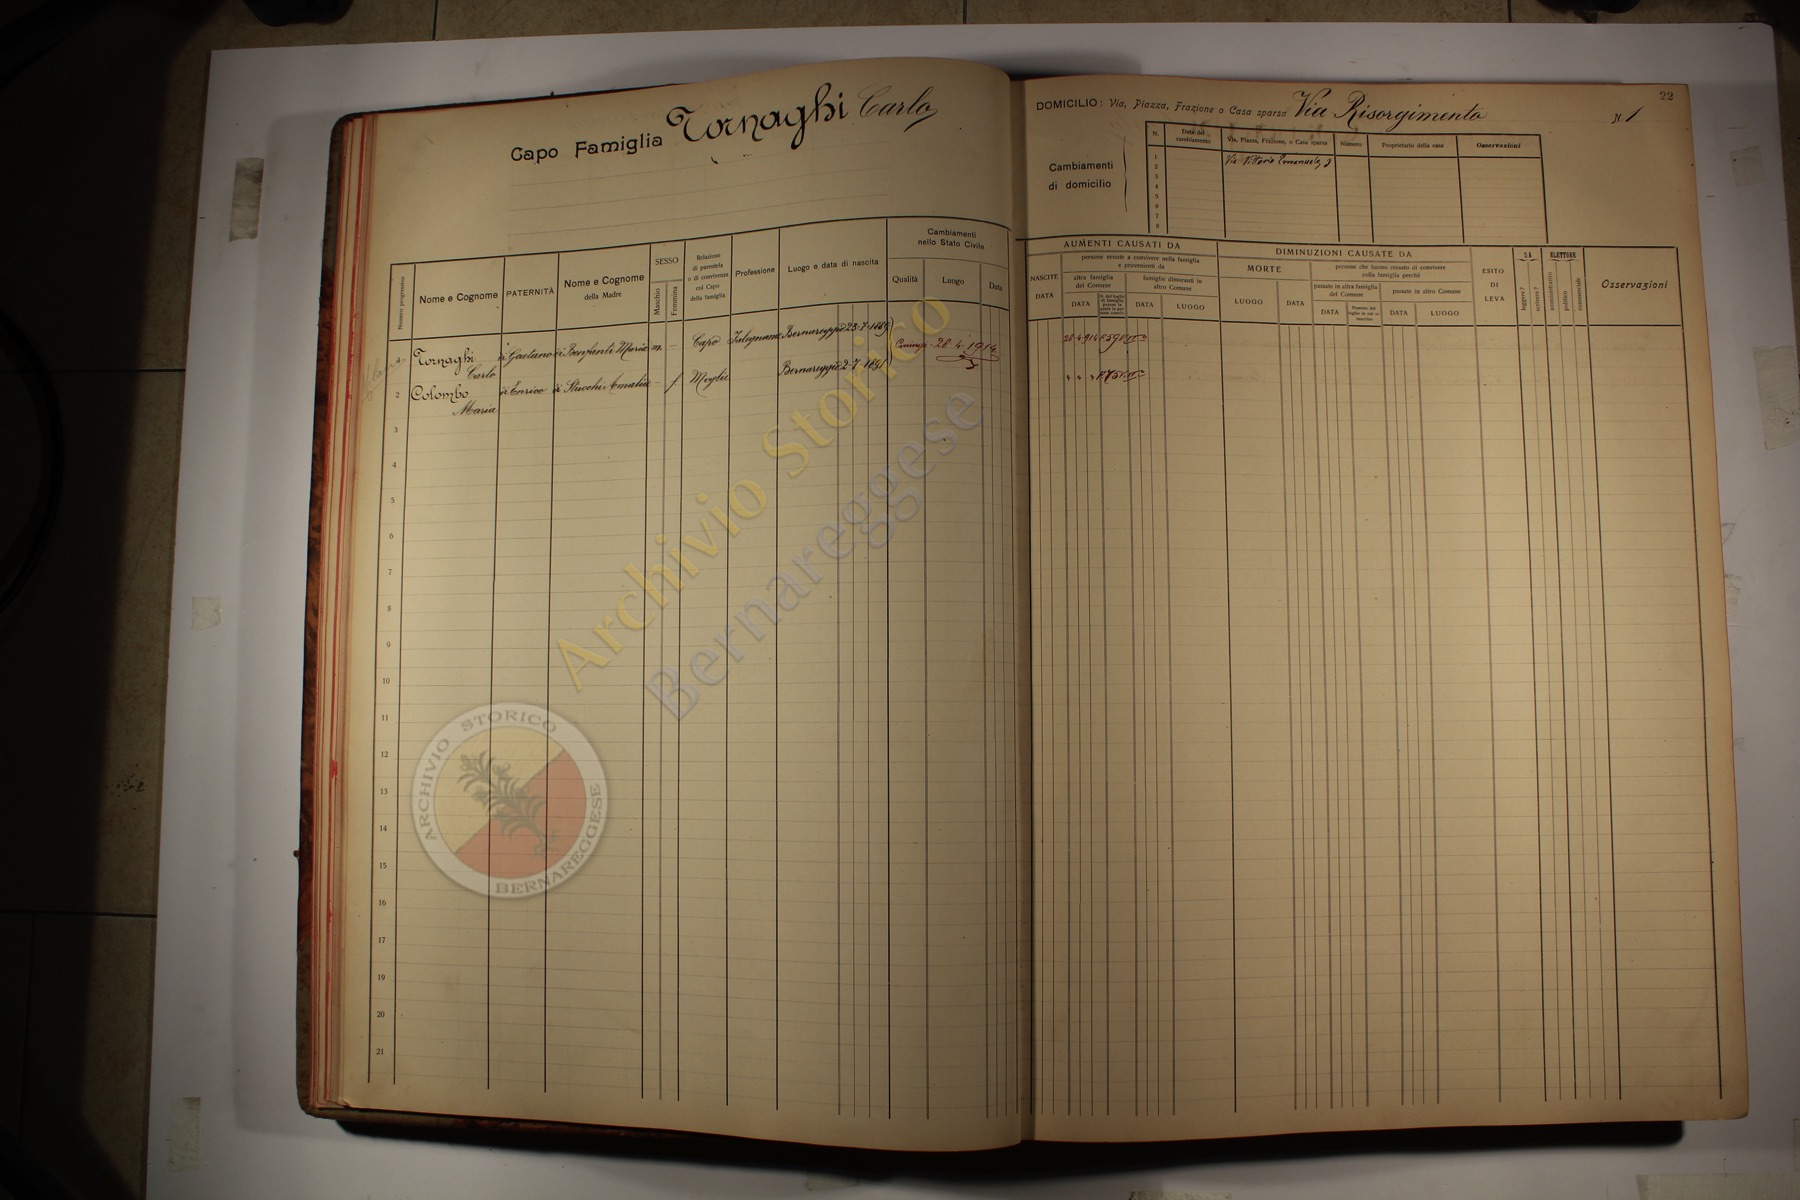 Capo Famiglia Tornaghi Carlo
22
DOMICILIO: Via, Piazza, Frazione o Casa sparsa Via Risorgimento N. 1
Cambiamenti
di domicilio
N.
Data del
cambiamento
Via, Piazza, Frazione, o Casa sparsa
Numero
Proprietario della casa
Osservazioni
1
2
3
4
5
6
7
8
Via Vittorio Emanuele, 9
Numero progressivo
Nome e Cognome
PATERNITÀ
Nome e Cognome
della Madre
SESSO
Maschio
Femmina
Relazione
di parentela
o di convivenza
col Capo
della famiglia
Professione
Luogo e data di nascita
Cambiamenti
nello Stato Civile
Qualità
Luogo
Data
NASCITE
DATA
AUMENTI CAUSATI DA
persone venute a convivere nella famiglia
e provenienti da
altra famiglia
del Comune
famiglie dimoranti in
altro Comune
DATA
DATA
LUOGO
DIMINUZIONI CAUSATE DA
MORTE
LUOGO
DATA
persone che hanno cessato di convivere
colla famiglia perchè
passate in altra famiglia
del Comune
passate in altro Comune
DATA
DATA
LUOGO
ESITO
DI
LEVA
SA
leggere?
scrivere?
ELETTORE
amministrativo
politico
commerciale
Osservazioni
1 Tornaghi Carlo di Gaetano di Bonfanti Maria m. – Capo Falegname Bernareggio 23-7-1889 Coniug. 28.4.1914. 28-4-914
2 Colombo Maria di Enrico di Stucchi Amalia – f Moglie Bernareggio 2-7-1891 " " "
3
4
5
6
7
8
9
10
11
12
13
14
15
16
17
18
19
20
21
Archivio Storico
Bernareggese
ARCHIVIO STORICO
BERNAREGGESE